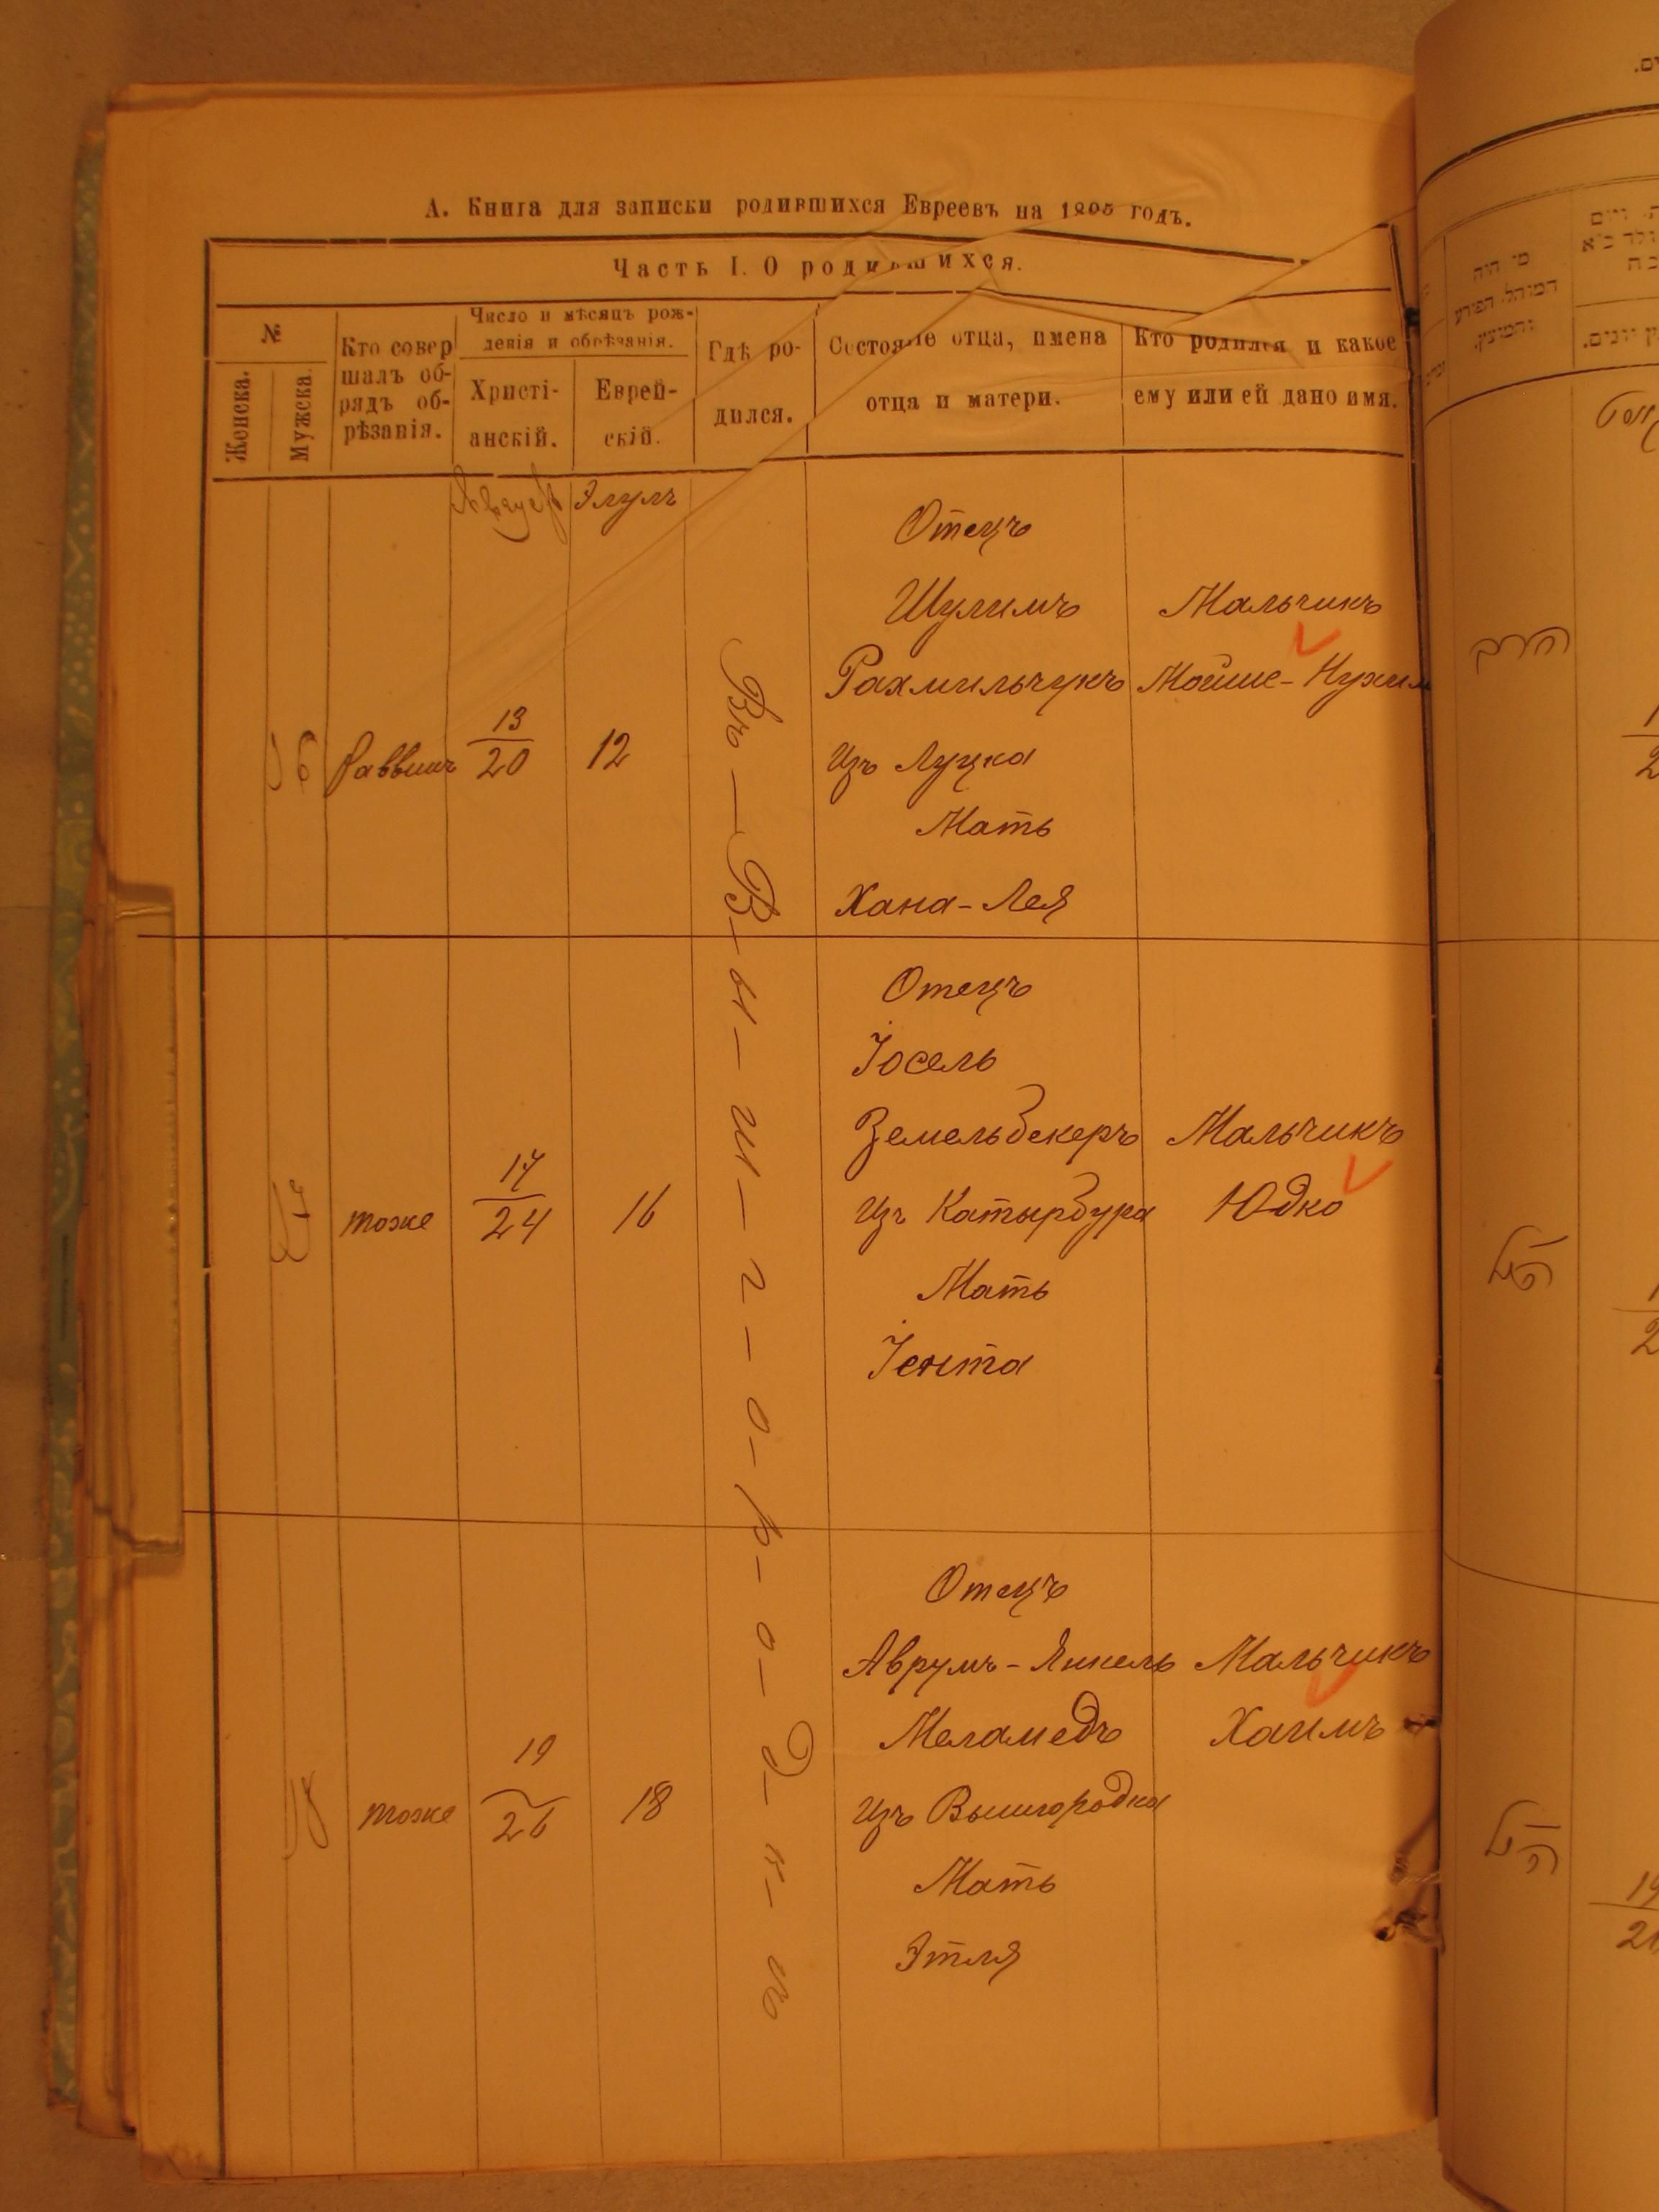 А. Книга для записки родившихся Евреевъ на 1895 годъ.
Часть I. О родившихся.
№
Женска.
Мужска.
Кто совер
шалъ об-
рядъ об-
рѣзанія.
Число и мѣсяцъ рож-
денія и обрѣзанія.
Христі-
анскій.
Еврей-
скій.
Гдѣ ро-
дился.
Состояніе отца, имена
отца и матери.
Кто родился и какое
ему или ей дано имя.
Августъ
Элулъ
Въ - В - ы - ш - г - о - р - о - д - к - ѣ
Раввинъ
13
20
12
Отецъ
Шулимъ
Рахмильчукъ
Изъ Луцка
Мать
Хана-Лея
Мальчикъ
Мойше-Нухим
тоже
17
24
16
Отецъ
Іосель
Земельбекеръ
Изъ Катырбура
Мать
Іента
Мальчикъ
Юдко
тоже
19
26
18
Отецъ
Аврумъ-Янкель
Меламедъ
Изъ Вышгородка
Мать
Этля
Мальчикъ
Хаимъ
מי היה
המוהל הפורע
והמוצץ.